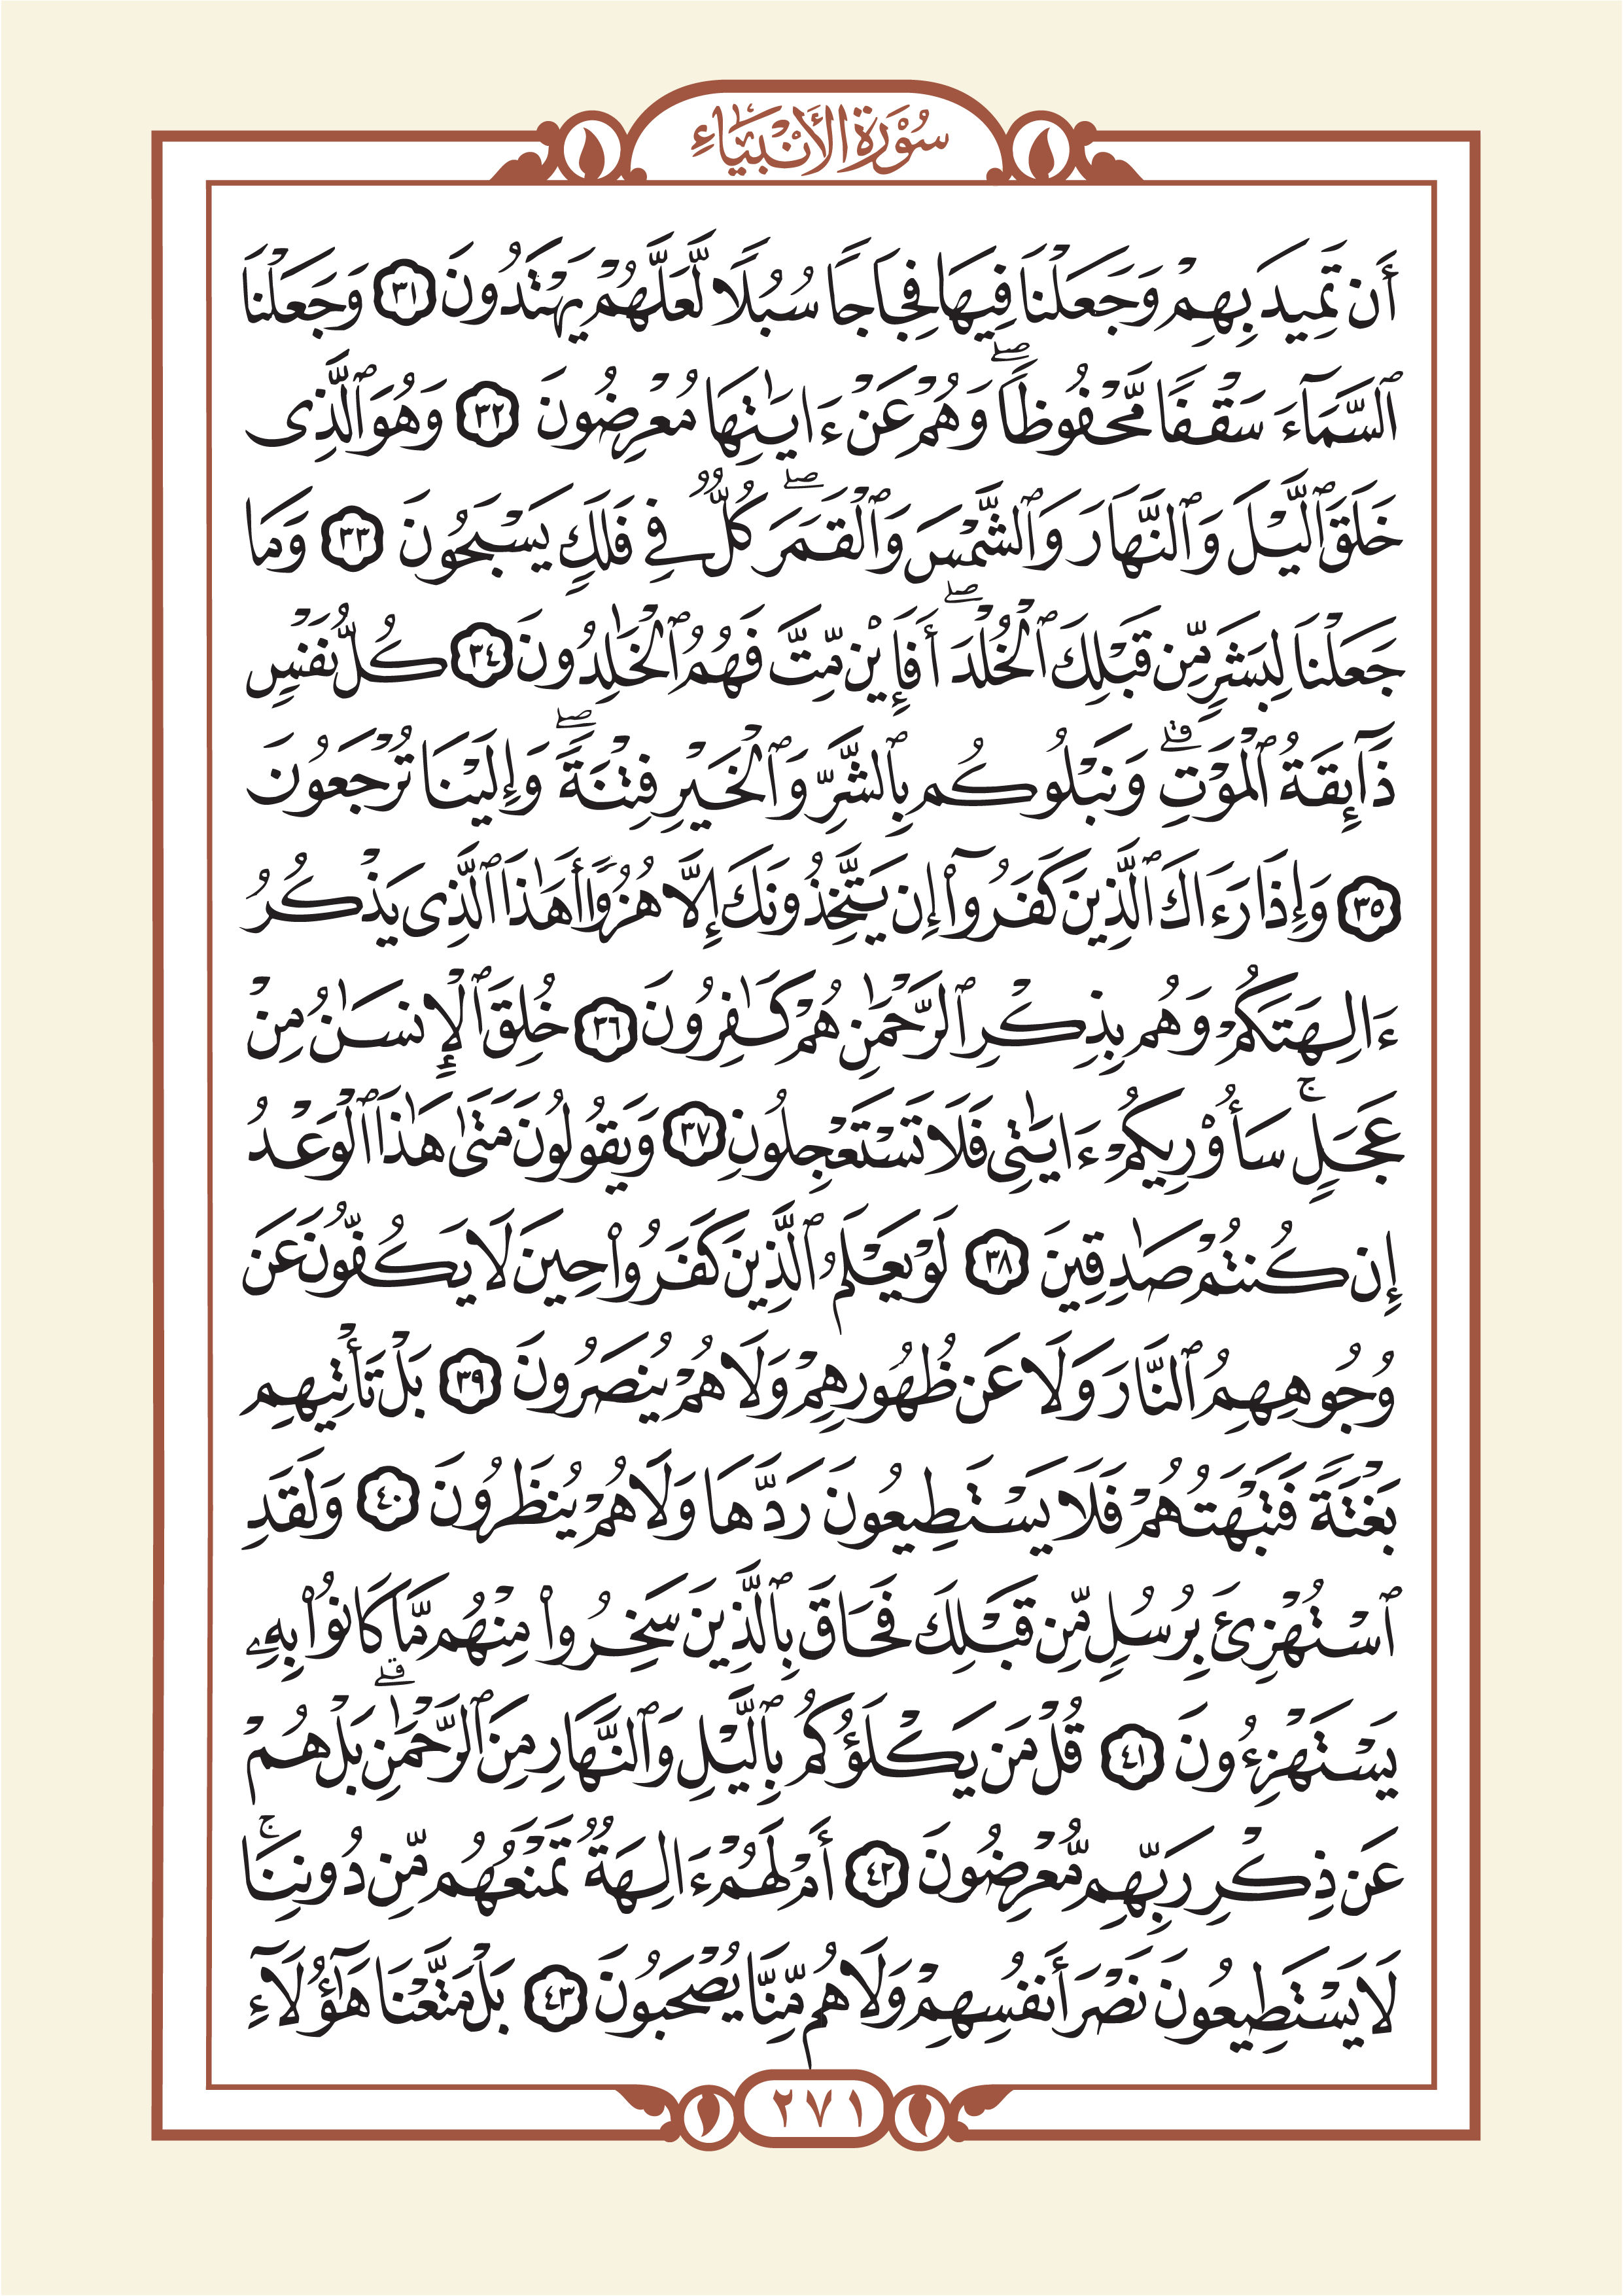 سُوْرَةُ الأَنْبِيَاءِ
أَن تَمِيدَ بِهِمْ وَجَعَلْنَا فِيهَا فِجَاجًا سُبُلًا لَّعَلَّهُمْ يَهْتَدُونَ ٣١ وَجَعَلْنَا
ٱلسَّمَآءَ سَقْفًا مَّحْفُوظًاۖ وَهُمْ عَنْ ءَايَٰتِهَا مُعْرِضُونَ ٣٢ وَهُوَ ٱلَّذِى
خَلَقَ ٱلَّيْلَ وَٱلنَّهَارَ وَٱلشَّمْسَ وَٱلْقَمَرَۖ كُلٌّ فِى فَلَكٍ يَسْبَحُونَ ٣٣ وَمَا
جَعَلْنَا لِبَشَرٍ مِّن قَبْلِكَ ٱلْخُلْدَۖ أَفَإِي۟ن مِّتَّ فَهُمُ ٱلْخَٰلِدُونَ ٣٤ كُلُّ نَفْسٍ
ذَآئِقَةُ ٱلْمَوْتِۗ وَنَبْلُوكُم بِٱلشَّرِّ وَٱلْخَيْرِ فِتْنَةًۖ وَإِلَيْنَا تُرْجَعُونَ
٣٥ وَإِذَا رَءَاكَ ٱلَّذِينَ كَفَرُوٓا۟ إِن يَتَّخِذُونَكَ إِلَّا هُزُوًا أَهَٰذَا ٱلَّذِى يَذْكُرُ
ءَالِهَتَكُمْ وَهُم بِذِكْرِ ٱلرَّحْمَٰنِ هُمْ كَٰفِرُونَ ٣٦ خُلِقَ ٱلْإِنسَٰنُ مِنْ
عَجَلٍۚ سَأُو۟رِيكُمْ ءَايَٰتِى فَلَا تَسْتَعْجِلُونِ ٣٧ وَيَقُولُونَ مَتَىٰ هَٰذَا ٱلْوَعْدُ
إِن كُنتُمْ صَٰدِقِينَ ٣٨ لَوْ يَعْلَمُ ٱلَّذِينَ كَفَرُوا۟ حِينَ لَا يَكُفُّونَ عَن
وُجُوهِهِمُ ٱلنَّارَ وَلَا عَن ظُهُورِهِمْ وَلَا هُمْ يُنصَرُونَ ٣٩ بَلْ تَأْتِيهِم
بَغْتَةً فَتَبْهَتُهُمْ فَلَا يَسْتَطِيعُونَ رَدَّهَا وَلَا هُمْ يُنظَرُونَ ٤٠ وَلَقَدِ
ٱسْتُهْزِئَ بِرُسُلٍ مِّن قَبْلِكَ فَحَاقَ بِٱلَّذِينَ سَخِرُوا۟ مِنْهُم مَّا كَانُوا۟ بِهِۦ
يَسْتَهْزِءُونَ ٤١ قُلْ مَن يَكْلَؤُكُم بِٱلَّيْلِ وَٱلنَّهَارِ مِنَ ٱلرَّحْمَٰنِۗ بَلْ هُمْ
عَن ذِكْرِ رَبِّهِم مُّعْرِضُونَ ٤٢ أَمْ لَهُمْ ءَالِهَةٌ تَمْنَعُهُم مِّن دُونِنَاۚ
لَا يَسْتَطِيعُونَ نَصْرَ أَنفُسِهِمْ وَلَا هُم مِّنَّا يُصْحَبُونَ ٤٣ بَلْ مَتَّعْنَا هَٰٓؤُلَآءِ
٢٧١